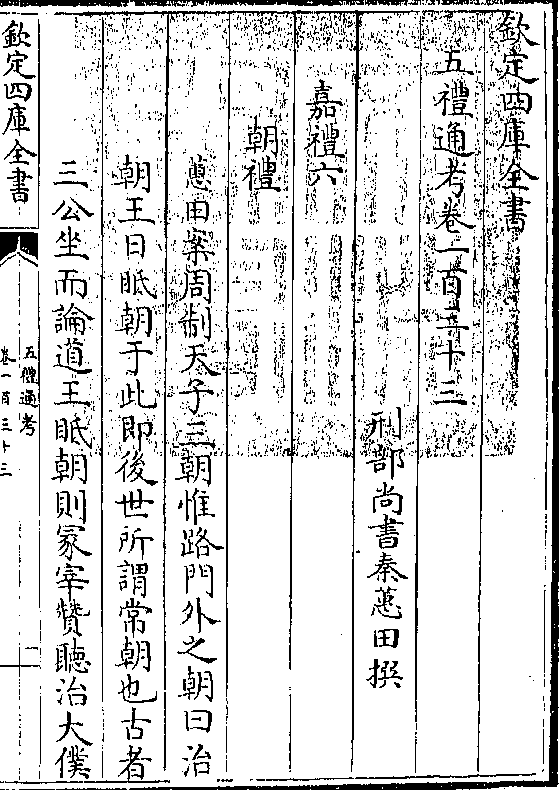 欽定四庫全書
五禮通考卷一百三十三
刑部尚書秦蕙田撰
嘉禮六
朝禮
蕙田案周制天子三朝惟路門外之朝曰治
朝王日眡朝于此即後世所謂常朝也古者
三公坐而論道王眡朝則冡宰贊聽治大僕
欽定四庫全書
五禮通考
卷一百三十三
一